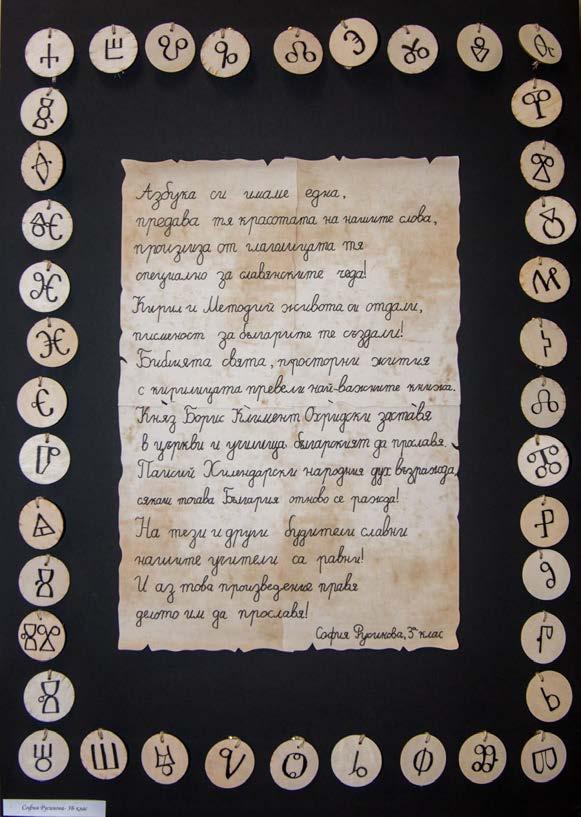 Азбука си имаме една,
предава тя красотата на нашите слова,
произлиза от глаголицата тя
специално за славянските чеда!
Кирил и Методий живота си отдали,
писменост за българите те създали!
Библията свята, просторни жития
с кирилицата превели най-важните книжа.
Княз Борис Климент Охридски заставя
в църкви и училища българският да прославя.
Паисий Хилендарски народния дух възражда,
сякаш тогава България отново се ражда!
На тези и други будители славни
нашите учители са равни!
И аз това произведение правя
делото им да прославя!
София Русинова, 3б клас
София Русинова- 3б клас